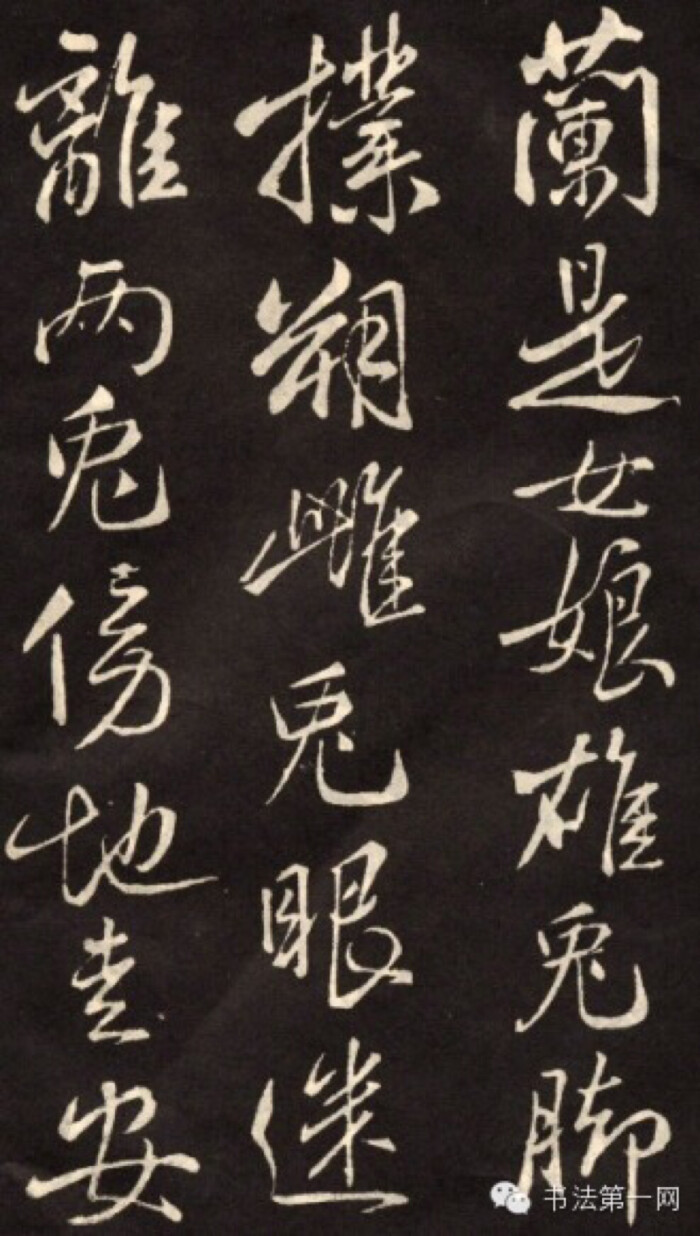 蘭是女娘雄兎脚
撲朔雌兎眼迷
離兩兎傍地走安
书法第一网